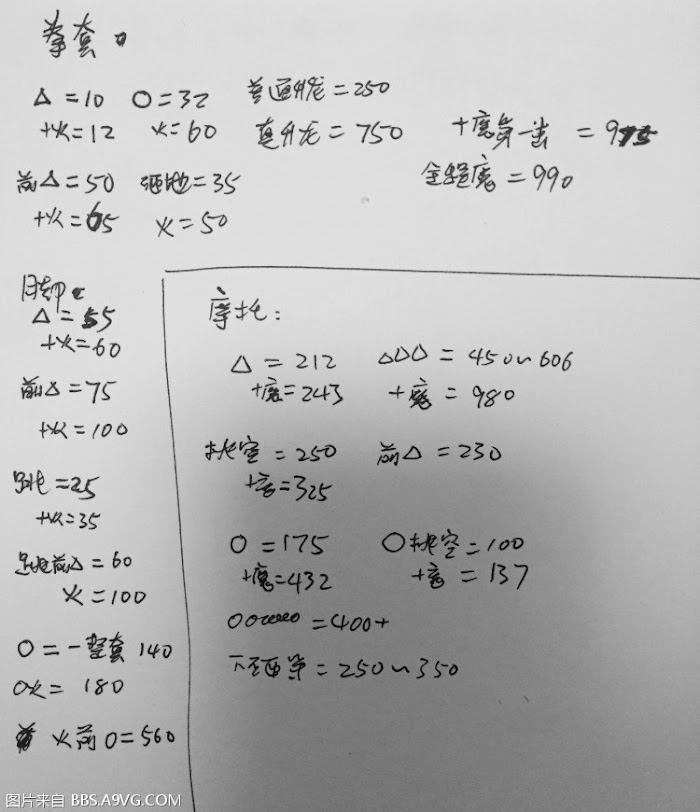 拳套。
△=10 O=32 普通升龙=250
+火=12 火=60 真升龙=750 +魔 =975
前△=50 砸地=35 全程魔=990
+火=65 火=50
△=55
+火=60
前△=75
+火=100
=25
+火=35
前△=60
火=100
O=一整套 140
O火=180
火前O=560
摩托：
△=212 △△△=450~606
+魔=243 +魔=980
挑空=250 前△=230
+魔=325
O=175 O挑空=100
+魔=432 +魔=137
=400+
=250~350
图片来自 BBS.A9VG.COM